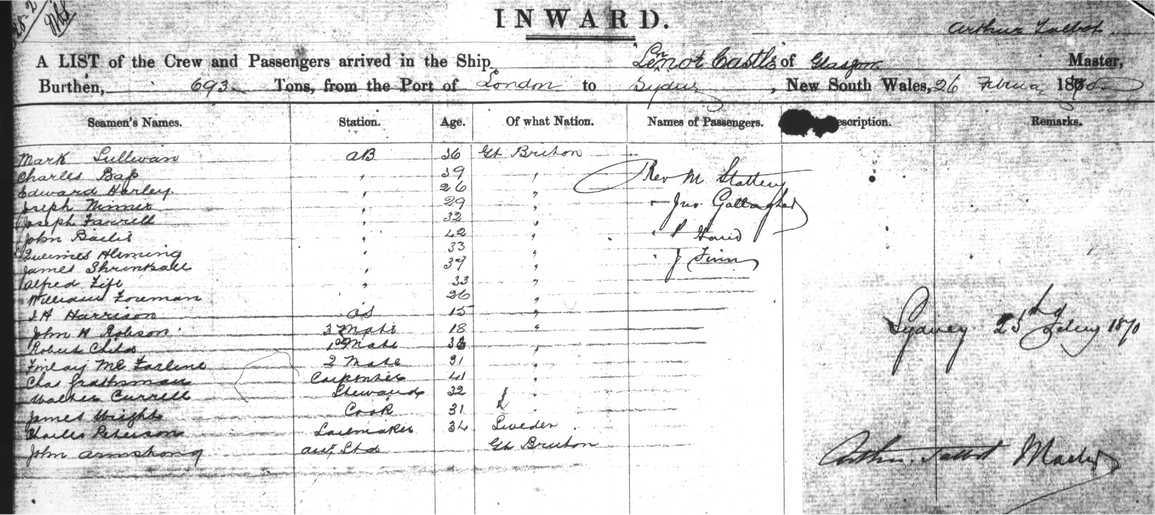 INWARD.
Arthur Talbot
A LIST of the Crew and Passengers arrived in the Ship Lennox Castle of Glasgow Master,
Burthen, 693 Tons, from the Port of London to Sydney, New South Wales, 26 1870
Seamen's Names. Station. Age. Of what Nation. Names of Passengers. Remarks.
Mark Sullivan AB 36 Gt Britain
Charles 39 "
Edward Harley " 26 " Rev M Slattery
Joseph " 29 " " Jno Gallagher
Joseph Farrell " 32 "
John " 42 " " P
Heming " 33 "
James " 39 " " J Finn
Alfred Fife " 33 "
William Foreman 26 "
Harrison OS 15 "
John H Robson 3 Mate 18 "
Robert Childs 1st Mate "
Finlay Mc Farline 2 Mate 21 "
Chas Carpenter 41 "
Walter Currell Steward 32 "
James Wright Cook 31
Charles Peterson Sailmaker 34 Sweden
John Armstrong Gt Britain
Sydney 25th Feby 1870
Arthur Talbot Master